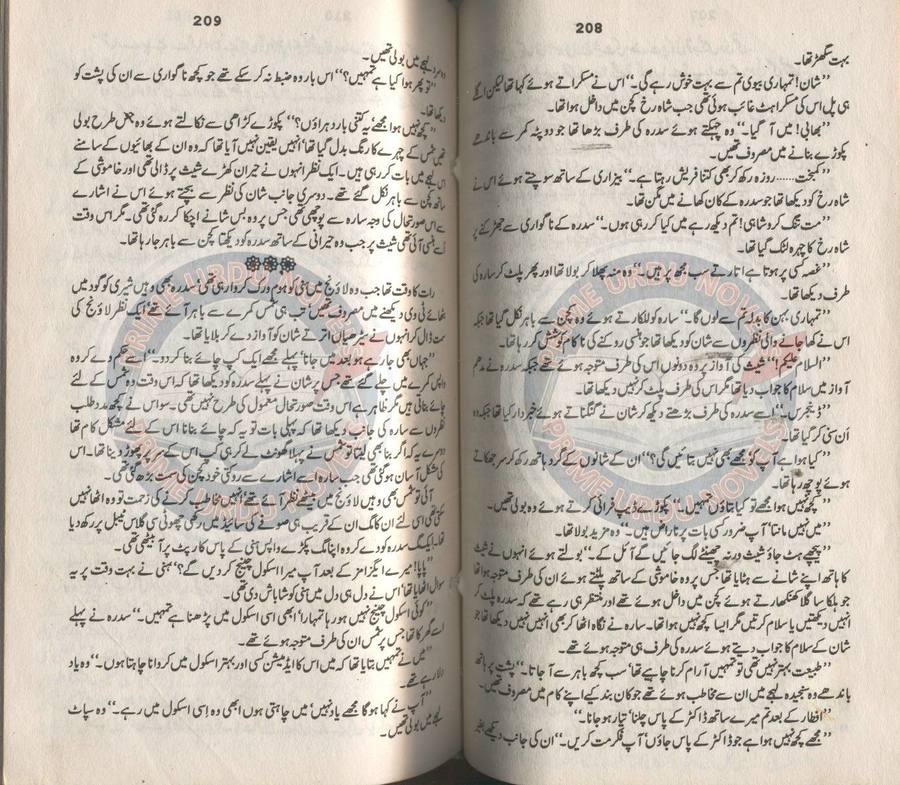 208
بہت سگھڑ تھا۔
”شان! تمہاری بیوی تم سے بہت خوش رہے گی۔“ اس نے مسکراتے ہوئے کہا تھا لیکن اگلے
ہی پل اس کی مسکراہٹ غائب ہوئی تھی جب شاہ رخ کچن میں داخل ہوا تھا۔
”بھابی! میں آ گیا۔“ وہ چہکتے ہوئے سدرہ کی طرف بڑھا تھا جو دوپٹہ کمر سے باندھے
پکوڑے بنانے میں مصروف تھیں۔
”کمبخت...... روزہ رکھ کر بھی کتنا فریش رہتا ہے۔“ بیزاری کے ساتھ سوچتے ہوئے اس نے
شاہ رخ کو دیکھا تھا جو سدرہ کے کان کھانے میں مگن تھا۔
”مت تنگ کرو شاہی! تم دیکھ رہے میں کیا کر رہی ہوں۔“ سدرہ کے ناگواری سے جھڑکنے پر
شاہ رخ کا چہرہ لٹک گیا تھا۔
”غصہ کسی پر ہوتا ہے اتارتے سب مجھ پر ہیں۔“ وہ منہ پھلا کر بولا تھا اور پھر پلٹ کر سارہ کی
طرف دیکھا تھا۔
”تمہاری بہن کا بدلہ تم سے لوں گا۔“ سارہ کو للکارتے ہوئے وہ کچن سے باہر نکل گیا تھا جبکہ
اس نے کھا جانے والی نظروں سے شان کو دیکھا تھا جو ہنسی روکنے کی ناکام کوشش کر رہا تھا۔
”السلام علیکم!“ شیث کی آواز پر وہ دونوں اس کی طرف متوجہ ہوئے تھے جبکہ سدرہ نے مدھم
آواز میں سلام کا جواب دیا تھا مگر اس کی طرف پلٹ کر نہیں دیکھا تھا۔
”ڈینجرس۔“ اسے سدرہ کی طرف بڑھتے دیکھ کر شان نے گنگناتے ہوئے خبردار کیا تھا جبکہ وہ
اَن سنی کر گیا تھا۔
”کیا ہوا ہے آپ کو مجھے بھی نہیں بتائیں گی؟“ ان کے شانوں کے گرد ہاتھ رکھ کر سر جھکائے
ہوئے پوچھ رہا تھا۔
”کچھ نہیں ہوا مجھے تو کیا بتاؤں تمہیں۔“ پکوڑے ڈیپ فرائی کرتے ہوئے وہ بولی تھیں۔
”میں نہیں مانتا آپ ضرور کسی بات پر ناراض ہیں۔“ وہ مزید بولا تھا۔
”پیچھے ہٹ جاؤ شیث ورنہ چھینٹے لگ جائیں گے آئل کے۔“ بولتے ہوئے انہوں نے شیث
کا ہاتھ اپنے شانے سے ہٹایا تھا جس پر وہ خاموشی کے ساتھ پلٹتے ہوئے ان کی طرف متوجہ ہوا تھا
جو ہلکا سا گلا کھنکھارتے ہوئے کچن میں داخل ہوئے تھے اور منتظر ہی رہے تھے کہ سدرہ پلٹ کر
انہیں دیکھتیں یا سلام کرتیں مگر ایسا کچھ نہیں ہوا تھا۔ سارہ نے نگاہ اٹھا کر بھی انہیں نہیں دیکھا تھا جو
شان کے سلام کا جواب دیتے ہوئے سدرہ کی ہی طرف متوجہ ہوئے تھے۔
”طبیعت بہتر نہیں تھی تو تمہیں آرام کرنا چاہیے تھا‘ سب کچھ باہر سے آ جاتا۔“ پشت پر ہاتھ
باندھے وہ سنجیدہ لہجے میں ان سے مخاطب ہوئے تھے جو کان بند کیے اپنے کام میں مصروف تھیں۔
”افطار کے بعد تم میرے ساتھ ڈاکٹر کے پاس چلنا‘ تیار ہو جانا۔“
”مجھے کچھ نہیں ہوا ہے جو ڈاکٹر کے پاس جاؤں‘ آپ فکر مت کریں۔“ ان کی جانب دیکھے بغیر
209
لہجے میں بولی تھیں۔
”تو پھر ہوا کیا ہے تمہیں؟“ اس بار وہ ضبط نہ کر سکے تھے جو کچھ ناگواری سے ان کی پشت کو
دیکھا تھا۔
”کچھ نہیں ہوا مجھے‘ یہ کتنی بار دہراؤں؟“ پکوڑے کڑاھی سے نکالتے ہوئے وہ جس طرح بولی
تھیں شمس کے چہرے کا رنگ بدل گیا تھا‘ انہیں یقین نہیں آیا تھا کہ وہ ان کے بھائیوں کے سامنے
اس لہجے میں بات کر رہی ہیں۔ ایک نظر انہوں نے حیران کھڑے شیث پر ڈالی تھی اور خاموشی کے
ساتھ کچن سے باہر نکل گئے تھے۔ دوسری جانب شان کی نظر سے بچتے ہوئے اس نے اشارے
سے اس صورتحال کی وجہ سارہ سے پوچھی تھی جس پر وہ بس شانے اچکا کر رہ گئی تھی۔ مگر اس وقت
اسے ہنسی آئی تھی شیث پر جب وہ حیرانی کے ساتھ سدرہ کو دیکھتا کچن سے باہر جا رہا تھا۔
رات کا وقت تھا جب وہ لاؤنج میں ہنی کو ہوم ورک کروا رہی تھی‘ سدرہ بھی وہیں شیری کو گود میں
بٹھائے ٹی وی دیکھنے میں مصروف تھیں‘ تب ہی شمس کمرے سے باہر آئے تھے‘ ایک نظر لاؤنج کی
سمت ڈال کر انہوں نے سیڑھیاں اترتے شان کو آواز دے کر بلایا تھا۔
”جہاں بھی جا رہے ہو بعد میں جانا‘ پہلے مجھے ایک کپ چائے بنا کر دو۔“ اسے حکم دے کر وہ
واپس کمرے میں چلے گئے تھے جس پر شان نے پہلے سدرہ کو دیکھا تھا کہ اس وقت وہ شمس کے لئے
چائے بناتی ہیں مگر ظاہر ہے اس وقت صورتحال معمول کی طرح نہیں تھی۔ سو اس نے کچھ مدد طلب
نظروں سے سارہ کی جانب دیکھا تھا کہ پہلی بات تو یہ کہ چائے بنانا اس کے لئے مشکل کام تھا
دوسرے یہ کہ اگر بنا بھی لیتا تو شمس نے پہلا گھونٹ لے کر ہی کپ اس کے سر پر پھوڑ دینا تھا۔ اس
کی مشکل آسان ہو گئی تھی جب سارہ اسے اشارے سے روکتی خود کچن کی سمت بڑھ گئی تھی۔
آئی تو شمس بھی وہیں لاؤنج میں بیٹھے نظر آئے تھے‘ انہیں مخاطب کرنے کی زحمت تو وہ اٹھا نہیں
سکتی تھی اس لئے ان کا مگ ان کے قریب ہی صوفے کی سائیڈ میں رکھی چھوٹی سی گلاس ٹیبل پر رکھ دیا
تھا۔ ایک مگ سدرہ کو دے کر وہ اپنا مگ پکڑے واپس ہنی کے پاس کارپٹ پر آ بیٹھی تھی۔
”پاپا! میرے ایگزامز کے بعد آپ میرا اسکول چینج کر دیں گے؟“ ہنی نے بہت وقت پر یہ
سوال اٹھایا تھا‘ اس نے دل ہی دل میں ہنی کو شاباش دی تھی۔
”کوئی اسکول چینج نہیں ہو رہا تمہارا‘ ابھی اسی اسکول میں پڑھنا ہے تمہیں۔“ سدرہ نے پہلے
اسے گھرکا تھا جس پر شمس ان کی طرف متوجہ ہوئے تھے۔
”میں نے تمہیں بتایا تھا کہ میں اس کا ایڈمیشن کسی اور بہتر اسکول میں کروانا چاہتا ہوں۔“ وہ یاد
دلا رہے تھے۔
”آپ نے کہا ہو گا مجھے یاد نہیں‘ میں چاہتی ہوں ابھی وہ اِسی اسکول میں رہے۔“ وہ سپاٹ
لہجے میں بولی تھیں۔
PRIME URDU NOVELS
PRIME URDU NOVELS